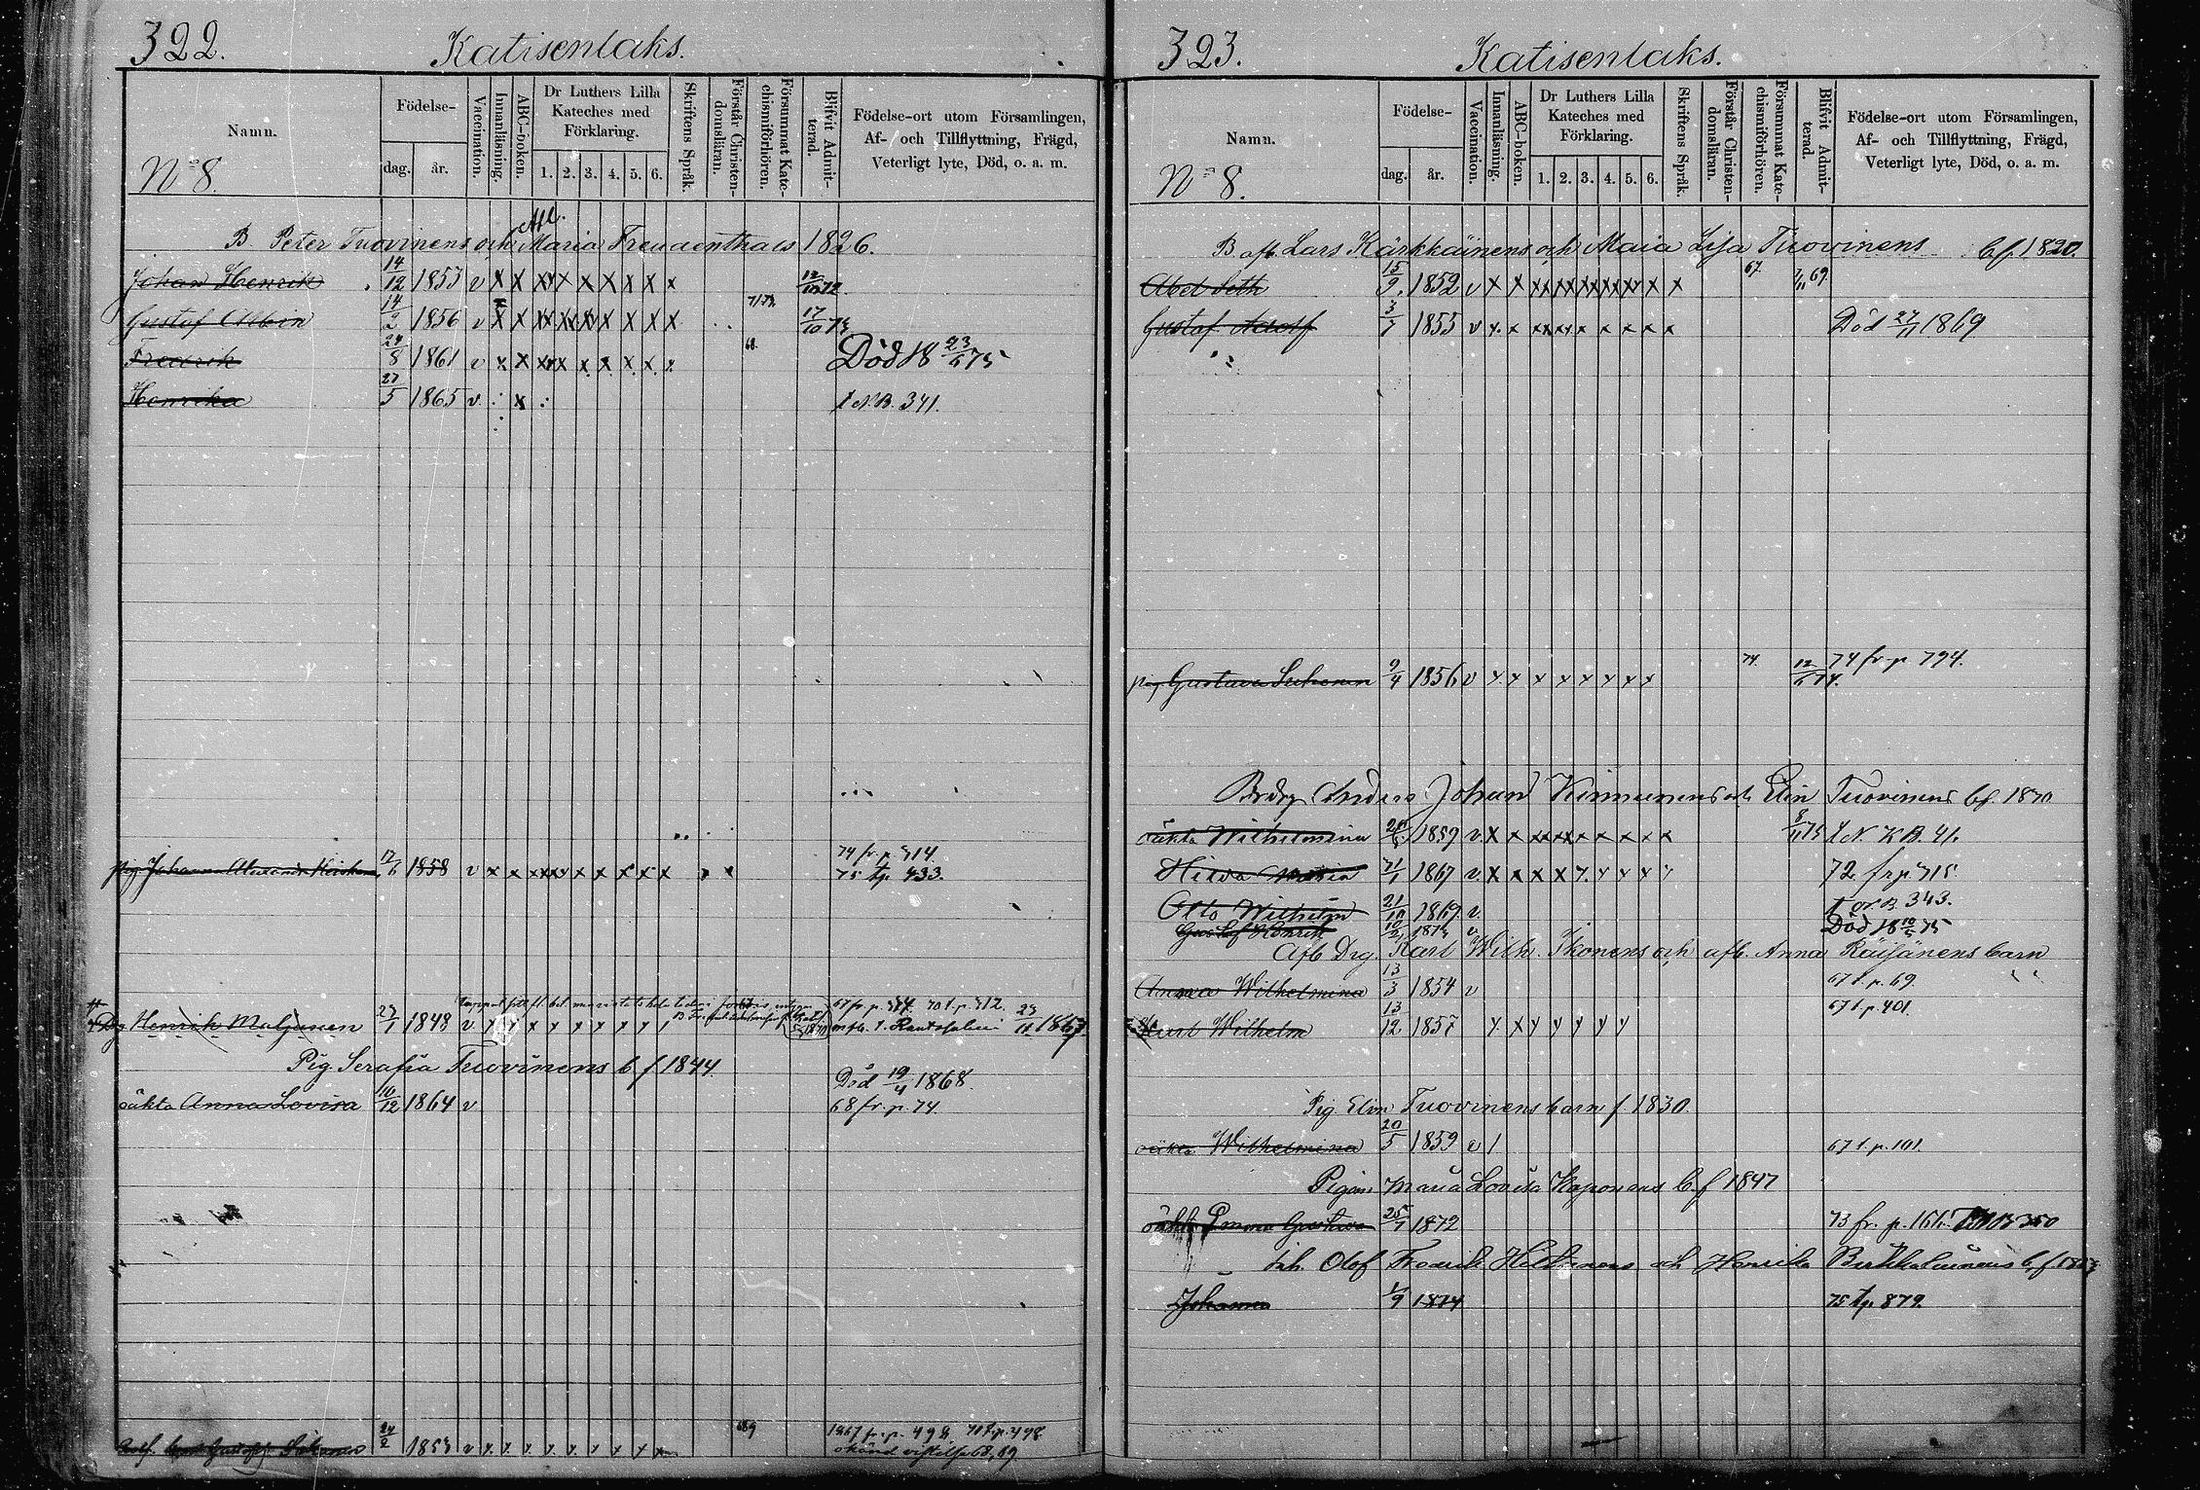 322.
Katisenlaks.
Namn.
Födelse-
dag.
år.
Vaccination.
Innanläsning.
ABC-boken.
Dr Luthers Lilla
Kateches med
Förklaring.
1. 2. 3. 4. 5. 6.
Skriftens Språk.
Förstår Christen-
domsläran.
Försummat Kate-
chismiförhören.
Blifvit Admit-
terad.
Födelse-ort utom Församlingen,
Af- och Tillflyttning, Frägd,
Veterligt lyte, Död, o. a. m.
No 8.
B Peter Tuovinens och Maria Freudenthals 1826.
Johan Henrik 14/12 1853 v x x x x x x x x x 12/10 72
Gustaf Albin 14/2 1856 v x x x x x x x x x 71 72 17/10 73
Fredrik 24/8 1861 v x x x x x x x x x 68. Död 18 23/6 75
Henrika 27/5 1865 v x N.B. 341.
74 fr. p. 714.
pig Johanna 17/6 1858 v x x x x x x x x x 75 t.p. 433.
Drg Henrik Maljanen 27/1 1848 v x x x x x x x x
Pig. Serafia Tuovinens b f 1844.
Död 19/4 1868.
oäkta Anna Lovisa 10/12 1864 v 68 fr. p. 74.
24/2 1853 v x x x x x x x x x 69 1867 fr. p. 498. 70 t. p. 498
323.
Katisenlaks.
Namn.
Födelse-
dag.
år.
Vaccination.
Innanläsning.
ABC-boken.
Dr Luthers Lilla
Kateches med
Förklaring.
1. 2. 3. 4. 5. 6.
Skriftens Språk.
Förstår Christen-
domsläran.
Försummat Kate-
chismiförhören.
Blifvit Admit-
terad.
Födelse-ort utom Församlingen,
Af- och Tillflyttning, Frägd,
Veterligt lyte, Död, o. a. m.
No 8.
B. afl. Lars Kärkkäinens och Maia Lisa Tuovinens b f. 1820.
Abel Seth 15/9 1852 v x x x x x x x x x x 67 69
Gustaf Adolf 3/7 1855 v x x x x x x x x x Död 27/11 1869
pig Gustava 9/4 1856 v x x x x x x x x 74. 12/6 74. 74 fr p 794.
Anders Johand Kinnunens och Elin Tuovinens b f. 1830
oäkta Wilhelmina 1859 v x x x x x x x x x 8/11 75 N K B. 41.
Hilda Maria 1867 v x x x x x x x x x 72. fr p 715
Otto Wilhelm 21/10 1869 v N.B. 343.
Gustaf Henrik v Död 18 10/5 75
Afl. Drg. Karl Wilh. Ikonens och afl. Anna Räisänens barn
Anna Wilhelmina 13/3 1854 v 67 t. p. 69.
Karl Wilhelm 13/12 1857 x x x x x x x 67 t. p. 401.
Pig Elin Tuovinens barn f. 1830.
oäkta Wilhelmina 20/5 1859 v / 67 t. p. 101.
Pigan Maria Lovisa Kaponens b. f 1847
oäkta Emma Gustava 25/1 1872 73 fr. p. 1616.
Inh. Olof Fredrik Hiltunens och Henrika
Johanna 1/9 1874 75 t.p. 879.